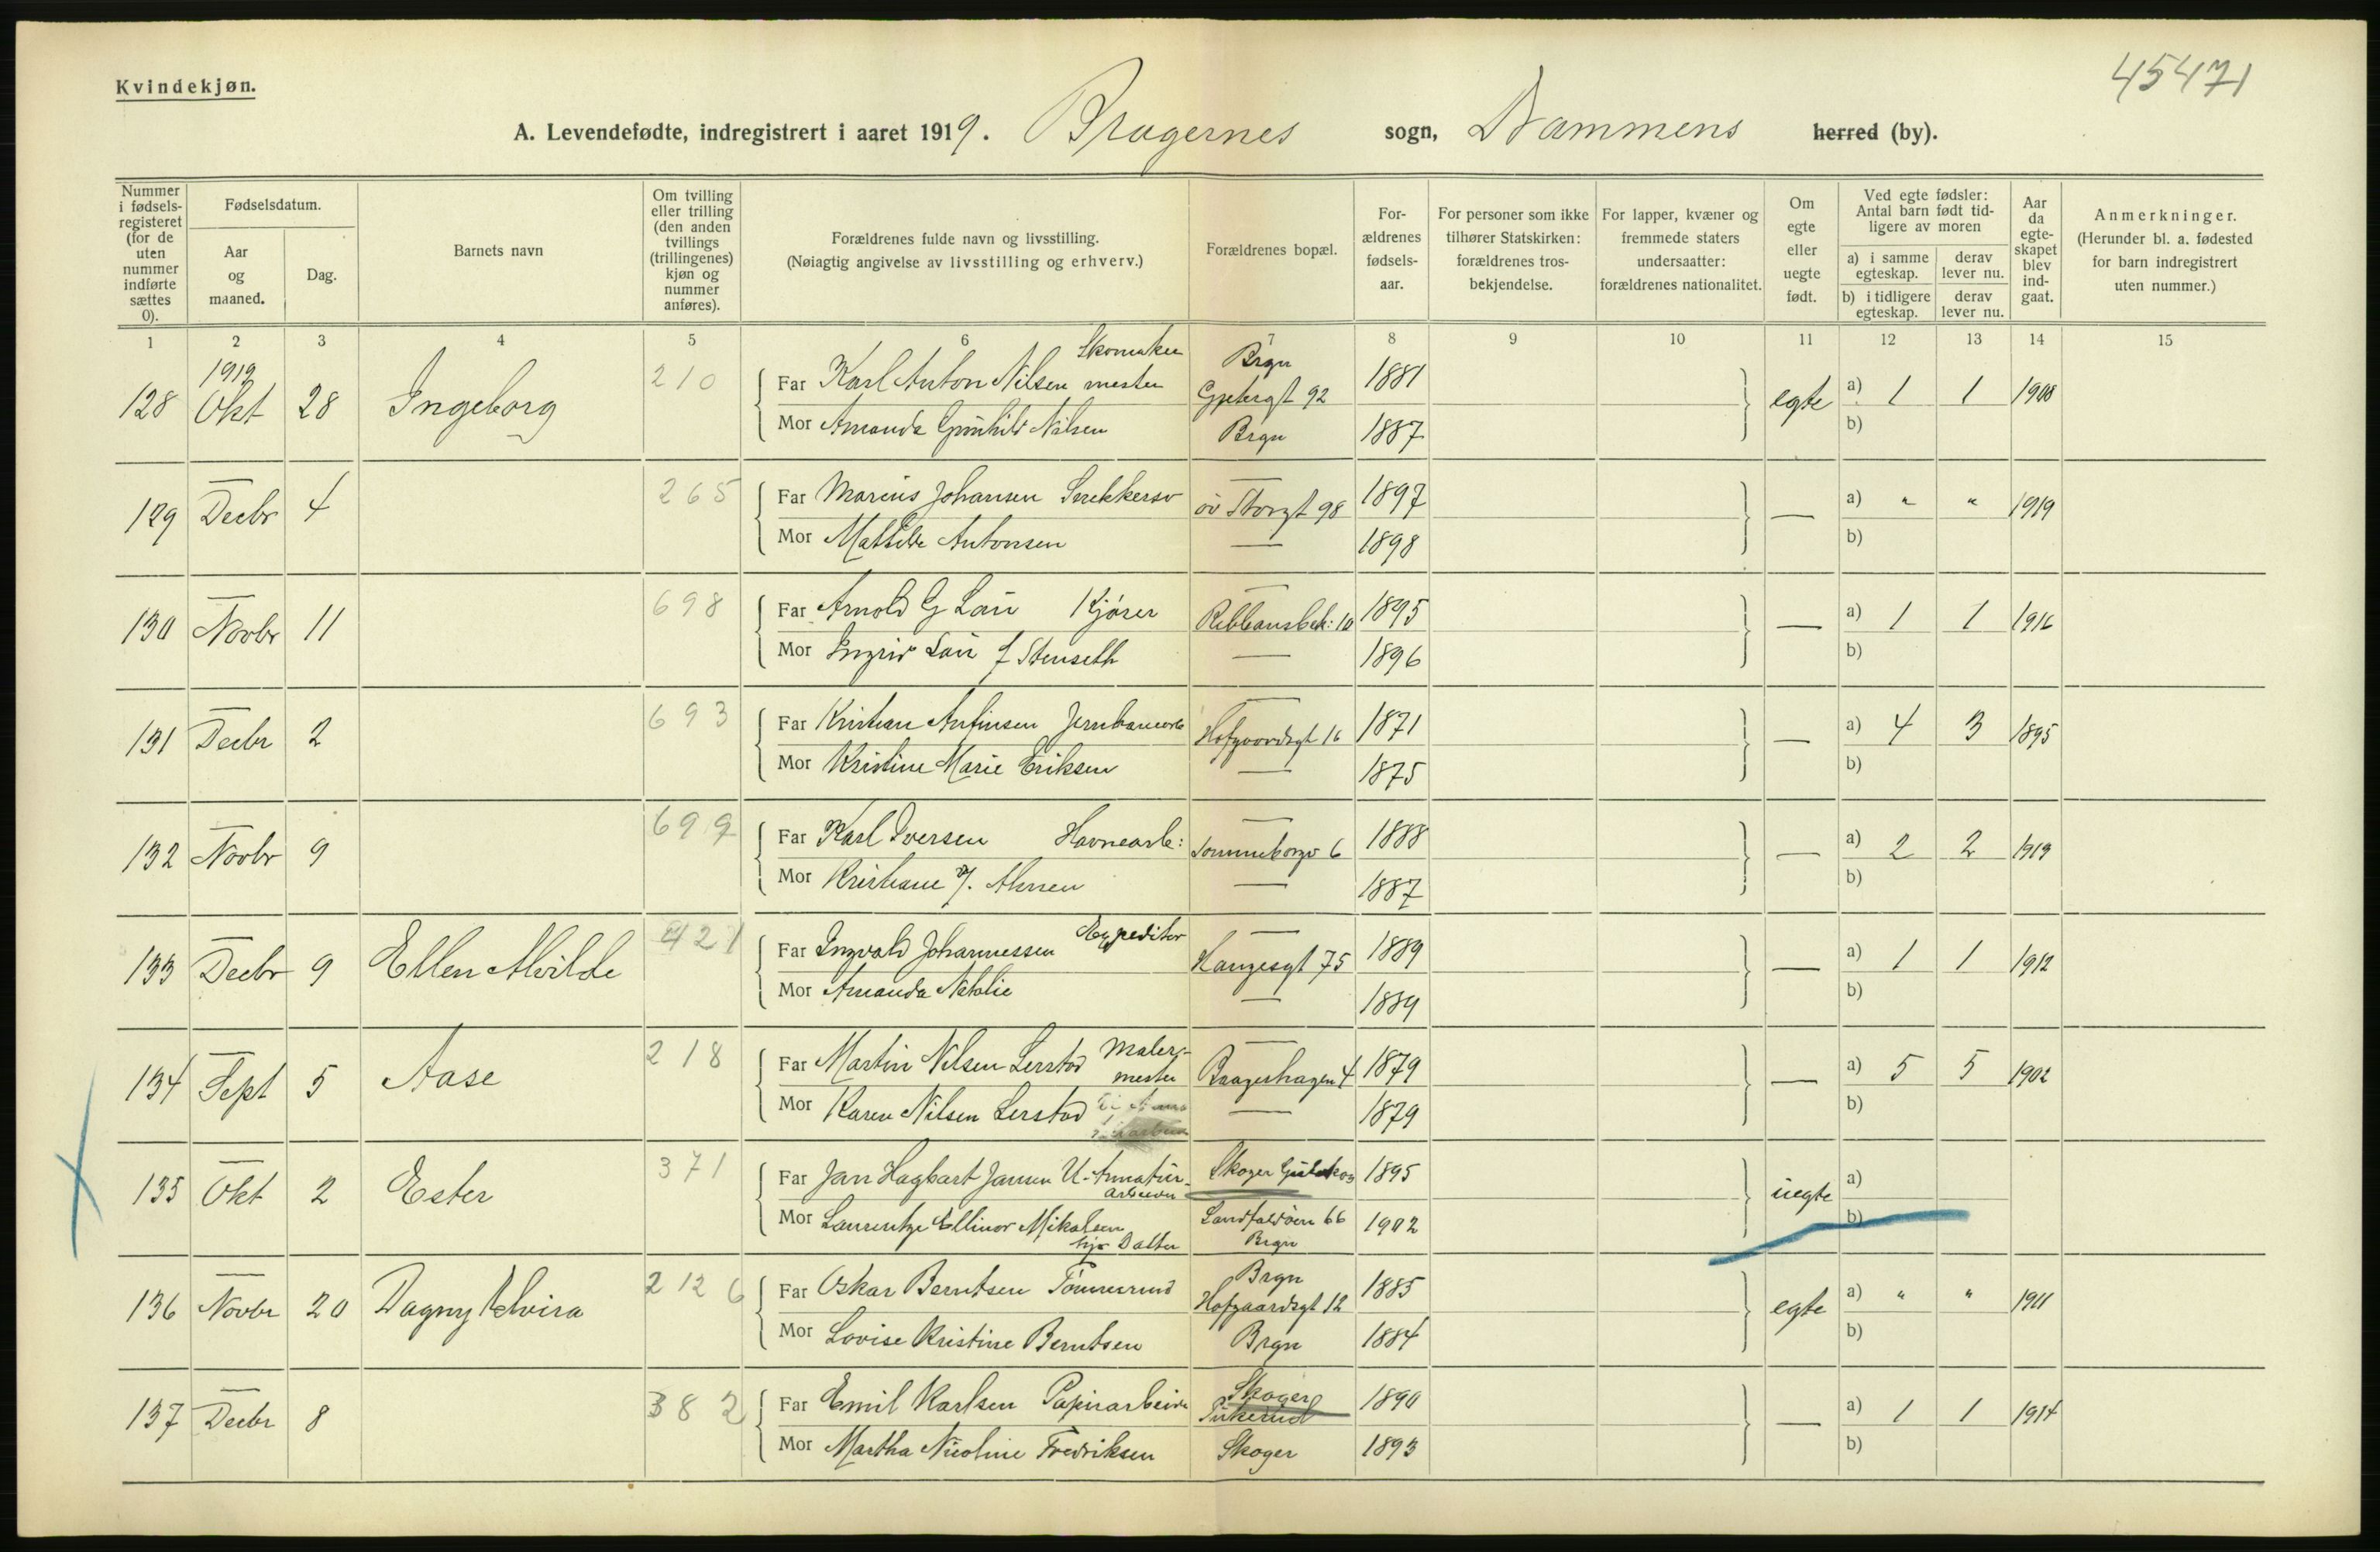 Kvindekjøn.
45471
A. Levendefødte, indregistrert i aaret 1919. Bragernes sogn, Drammens herred (by).
Nummer i fødselsregisteret (for de uten nummer indførte sættes 0).
Fødselsdatum.
Aar og maaned.
Dag.
Barnets navn
Om tvilling eller trilling (den anden tvillings (trillingenes) kjøn og nummer anføres).
Forældrenes fulde navn og livsstilling.
(Nøiagtig angivelse av livsstilling og erhverv.)
Forældrenes bopæl.
Forældrenes fødselsaar.
For personer som ikke tilhører Statskirken: forældrenes trosbekjendelse.
For lapper, kvæner og fremmede staters undersaatter: forældrenes nationalitet.
Om egte eller uegte født.
Ved egte fødsler: Antal barn født tidligere av moren
a) i samme egteskap.
derav lever nu.
b) i tidligere egteskap.
derav lever nu.
Aar da egteskapet blev indgaat.
Anmerkninger.
(Herunder bl. a. fødested for barn indregistrert uten nummer.)
1 2 3 4 5 6 7 8 9 10 11 12 13 14 15
128 1919 Okt 28 Ingeborg 210 Far Karl Anton Nilsen Skomaker mester Brgn 1881 egte a) 1 1 1908
92
Mor Amanda Gunhild Nilsen Brgn 1887 b)
129 — Decbr 4 265 Far Marius Johansen Snekkersv — öv Storgt 98 1897 — a) " " 1919
Mor Mathilde Antonsen — 1898 b)
130 — Novbr 11 698 Far Arnold G Lau Kjører — 10 1895 — a) 1 1 1916
Mor Ingrid Lau f Stenseth — 1896 b)
131 — Decbr 2 693 Far Kristian Anfinsen — Hofgaardsgt 16 1871 — a) 4 3 1895
Mor Kristine Marie Eriksen — 1875 b)
132 — Novbr 9 699 Far Karl Iversen Havnearb: — 6 1888 — a) 2 2 1919
Mor Kristiane — 1887 b)
133 — Decbr 9 Ellen Alvilde 421 Far Ingvald Johannessen Expeditør — Haugesgt 75 1889 — a) 1 1 1912
Mor Amanda Natalie — 1889 b)
134 — Sept 5 Aase 218 Far Martin Nilsen Lerstad Malermester — Bragerhagen 4 1879 — a) 5 5 1902
Mor Karen Nilsen Lerstad — 1879 b)
135 — Okt 2 Ester 371 Far Jan Hagbart Jansen U. Armatur-arbeider Skoger Gulskog 1895 uegte a)
Mor Laurentze Ellinor Mikalsen hjv Datter Landfaldöen 66 Brgn 1902 b)
136 — Novbr 20 Dagny Elvira 2126 Far Oskar Berntsen Tömmermd Brgn Hofgaardsgt 12 1885 egte a) " " 1911
Mor Lovise Kristine Berntsen Brgn 1884 b)
137 — Decbr 8 382 Far Emil Karlsen Papirarbeider Skoger 1890 — a) 1 1 1914
Mor Martha Nicoline Fredriksen Skoger 1893 b)